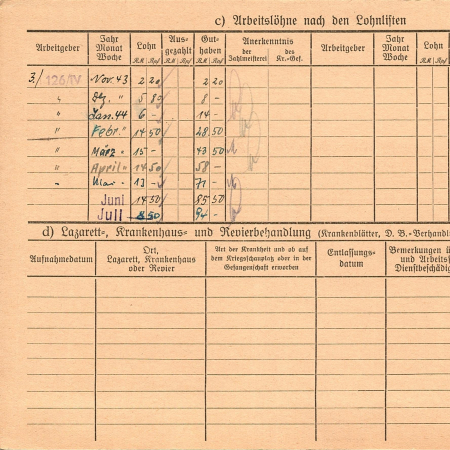 c) Arbeitslöhne nach den Lohnlisten
Arbeitgeber Jahr Monat Woche Lohn RM Rpf Ausgezahlt RM Rpf Guthaben RM Rpf Anerkenntnis der Zahlmeisterei des Kr.-Gef. Arbeitgeber Jahr Monat Woche Lohn RM Rpf
3./126/IV Nov. 43 2 20 2 20
" Dez. " 5 80 8 -
" Jan. 44 6 - 14 -
" Febr. " 14 50 28 50
" März " 15 - 43 50
" April " 14 50 58 -
" Mai " 13 - 71 -
Juni 14 50 85 50
Juli 8 50 94 -
d) Lazarett-, Krankenhaus- und Revierbehandlung (Krankenblätter, D. B.-Verhandl
Aufnahmedatum Ort, Lazarett, Krankenhaus oder Revier Art der Krankheit und ob auf dem Kriegsschauplatz oder in der Gefangenschaft erworben Entlassungsdatum Bemerkungen ü und Arbeitsf Dienstbeschädig